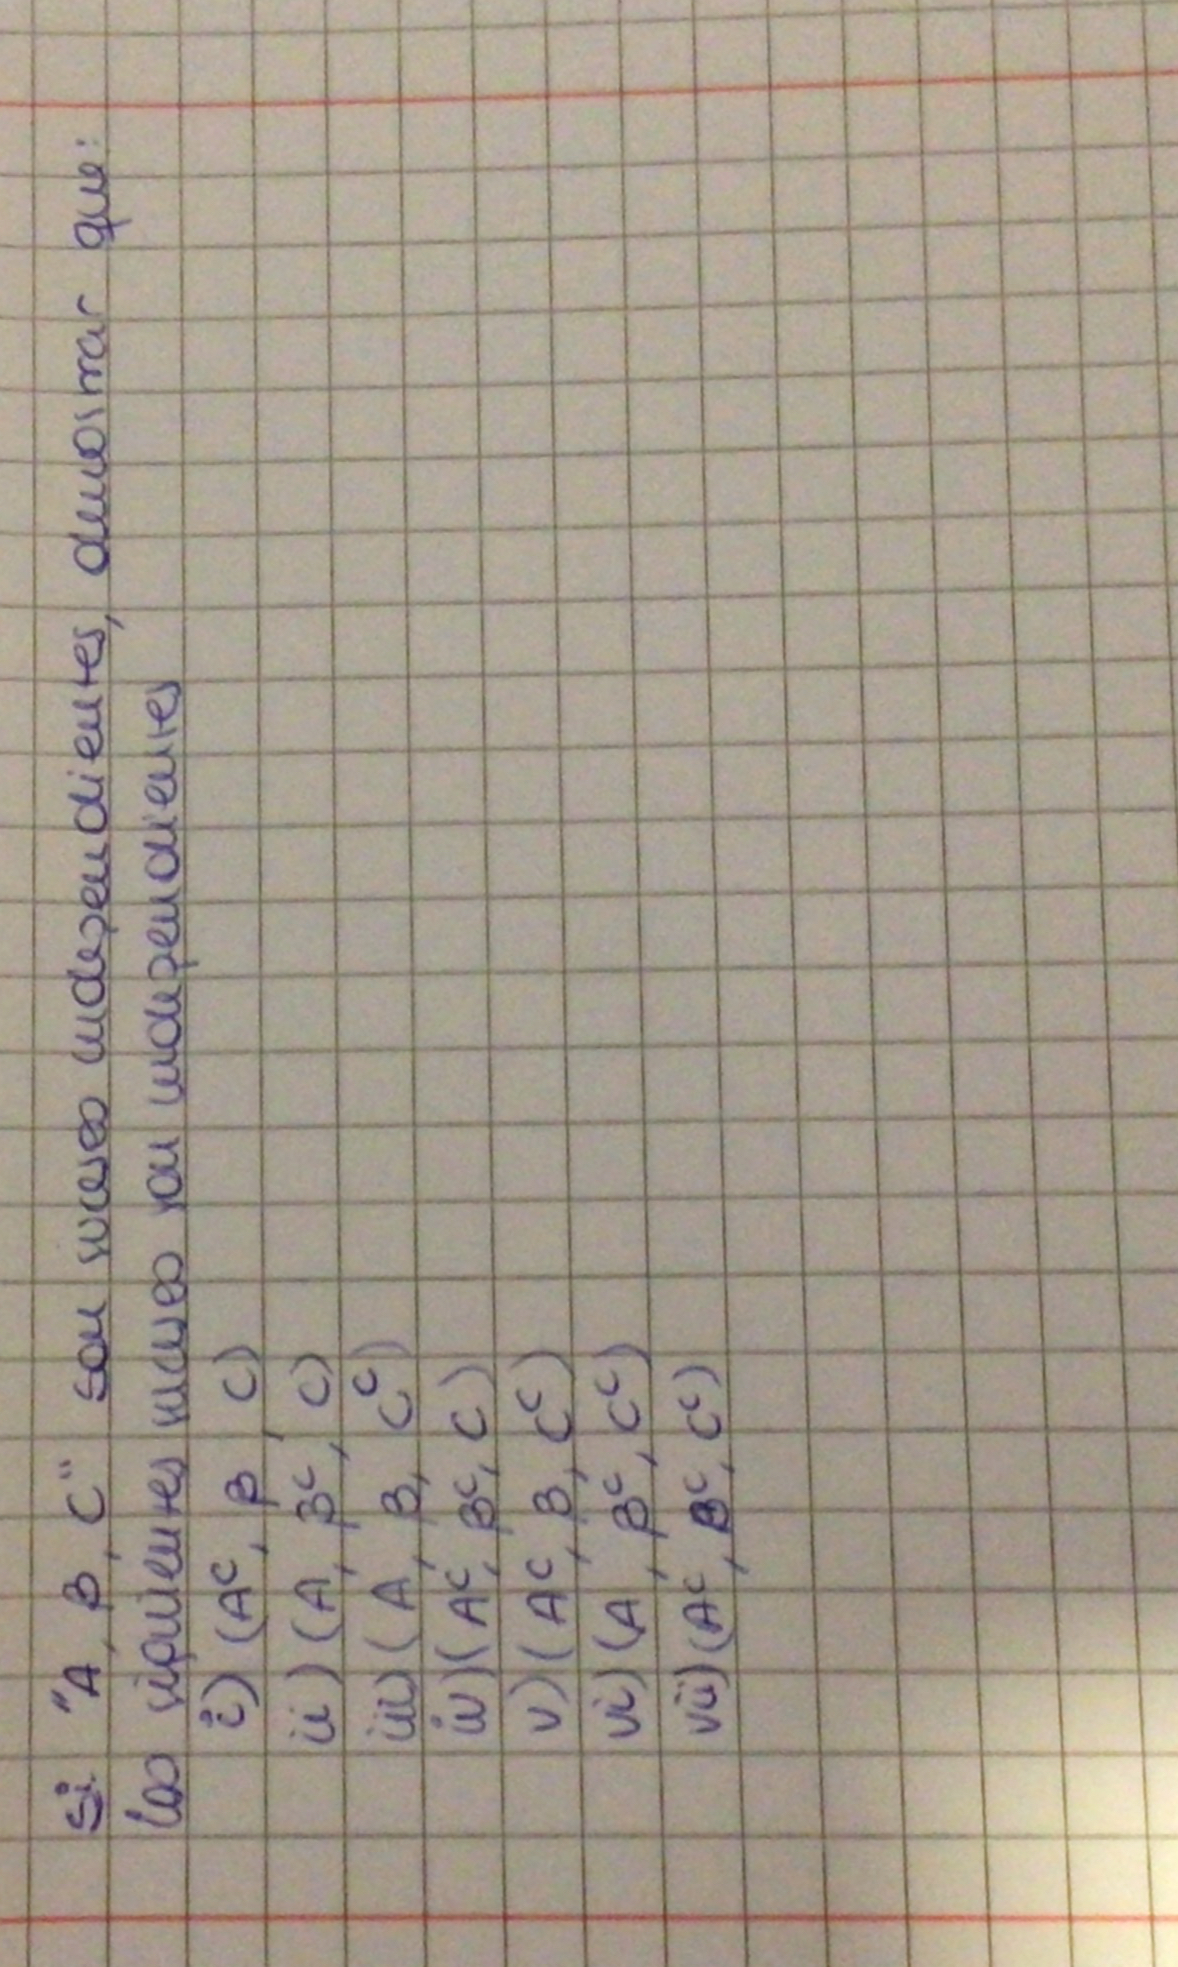 Si "A, B, C" son sucesos independientes, demostrar que:
los siguientes sucesos son independientes
i) (Aᶜ, B, C)
ii) (A, Bᶜ, C)
iii) (A, B, Cᶜ)
iv) (Aᶜ, Bᶜ, C)
v) (Aᶜ, B, Cᶜ)
vi) (A, Bᶜ, Cᶜ)
vii) (Aᶜ, Bᶜ, Cᶜ)